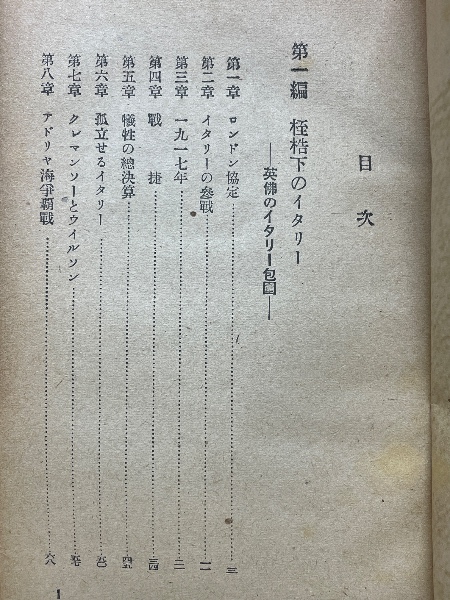 目次
第一編 桎梏下のイタリー
──英佛のイタリー包圍──
第一章 ロンドン協定……三
第二章 イタリーの參戰……一一
第三章 一九一七年……二二
第四章 戰捷……三四
第五章 犧牲の總決算……四五
第六章 孤立せるイタリー……五〇
第七章 クレマンソーとウイルソン……五七
第八章 アドリヤ海爭覇戰……六八
1